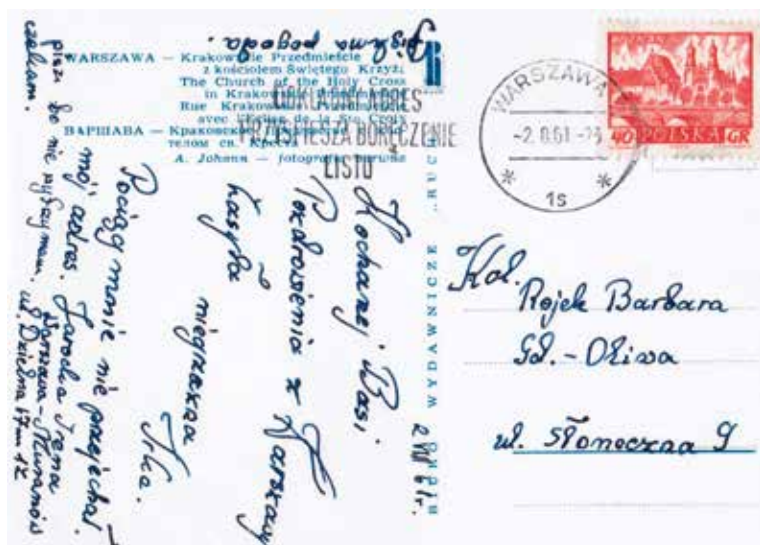 WARSZAWA — Krakowskie Przedmieście
z kościołem Świętego Krzyża
The Church of the Holy Cross
in Krakowskie Przedmieście
Rue Krakowskie
avec l'Eglise de la Ste Croix
ВАРШАВА — Краковское
телом св. Креста
A. Johann — fotografia barwna
BIURO WYDAWNICZE „RUCH"
DOKŁADNY ADRES
PRZYSPIESZA DORĘCZENIE
LISTU
WARSZAWA
-2.8.61
1s
POZNAŃ
40 POLSKA GR
2 VIII 61r.
Kochanej Basi
Pozdrowienia z Warszawy
zasyła
niegrzeczna
Irka.
Pociąg mnie nie przejechał.
mój adres. Jarocka Irena
Warszawa - Muranów
ul. Dzielna 17 m 12
pisz bo nie wytrzymam.
czekam.
pogoda.
Kol.
Rojek Barbara
Gd. - Oliwa
ul. Słoneczna 9